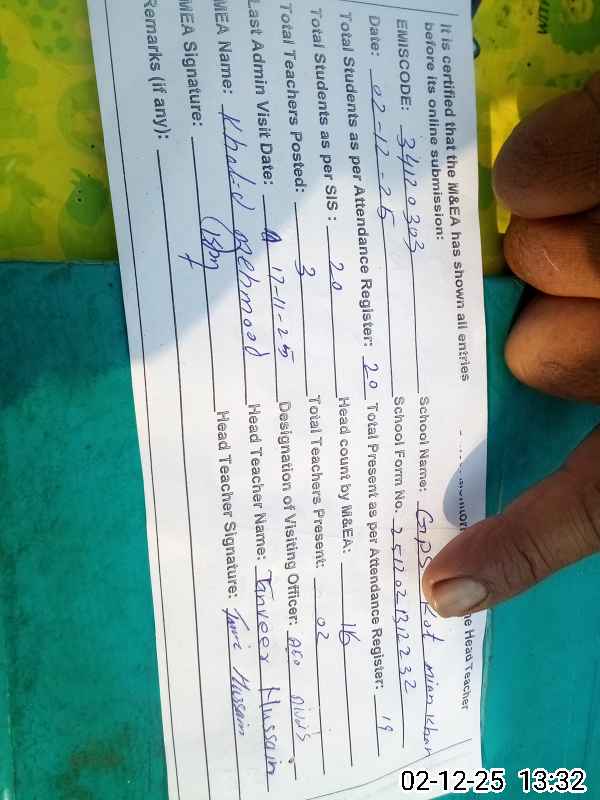 the Head Teacher
It is certified that the M&EA has shown all entries
before its online submission:
EMISCODE: 34120303 School Name: GPS Kot Mian Khan
Date: 02-12-25 School Form No. 251202-1312232
Total Students as per Attendance Register: 20 Total Present as per Attendance Register: 19
Total Students as per SIS : 20 Head count by M&EA: 16
Total Teachers Posted: 3 Total Teachers Present: 02
Last Admin Visit Date: 17-11-25 Designation of Visiting Officer: AEO
MEA Name: Khalid Mehmood Head Teacher Name: Tanveer Hussain
MEA Signature: Head Teacher Signature: Hussain
Remarks (if any):
02-12-25 13:32